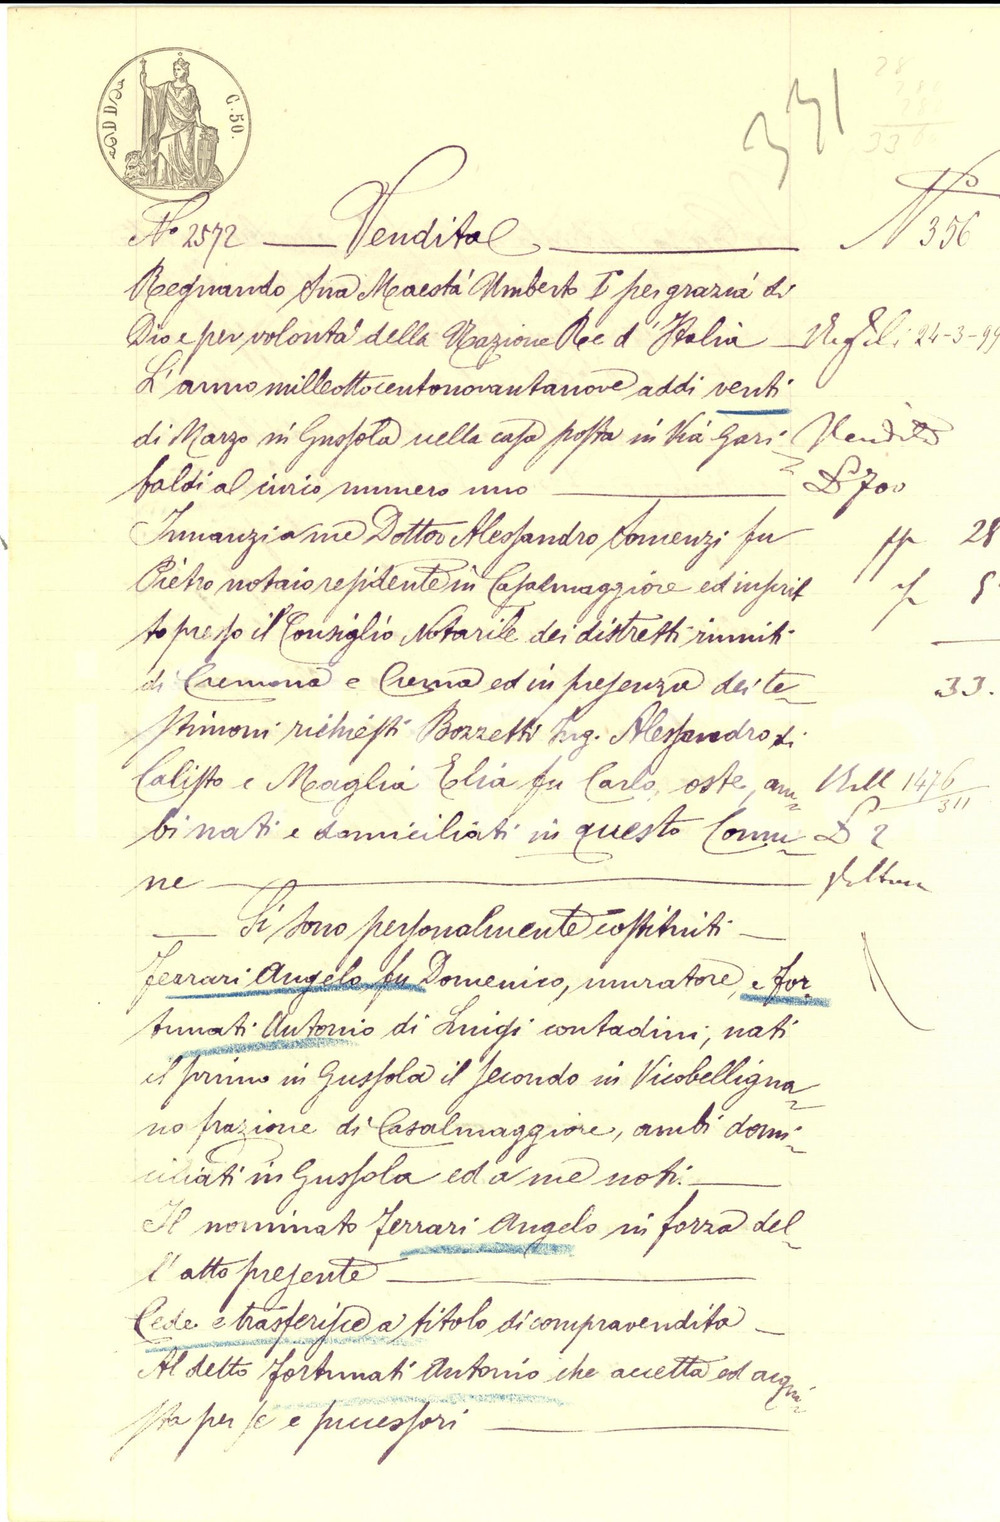 C. 50.
331
N.° 2572 Vendita
N° 356
Regnando Sua Maestà Umberto I° per grazia di
Dio e per volontà della Nazione Re d'Italia
24-3-99
L'anno milleottocentonovantanove addi venti
di Marzo in Gussola nella casa posta in Via Gari=
Vendita
baldi al civico numero uno
£ 700
Innanzi a me Dottor Alessandro Somenzi fu
28
Pietro notaio residente in Casalmaggiore ed inscrit
5
to presso il Consiglio Notarile dei distretti riuniti
di Cremona e Crema ed in presenza dei te=
33.
stimoni richiesti Bozzetti Ing. Alessandro di
Calisto e Maglia Elia fu Carlo, oste, am=
1476
311
bi nati e domiciliati in questo Comu=
£ 2
ne
Si sono personalmente costituiti
Ferrari Angelo fu Domenico, muratore, e For
tunati Antonio di Luigi contadini, nati
il primo in Gussola il secondo in Vicobelligna=
no frazione di Casalmaggiore, ambi domi=
ciliati in Gussola ed a me noti.
Il nominato Ferrari Angelo in forza del=
l'atto presente
Cede e trasferisce a titolo di compravendita
Al detto Fortunati Antonio che accetta ed acqui=
sta per se e successori